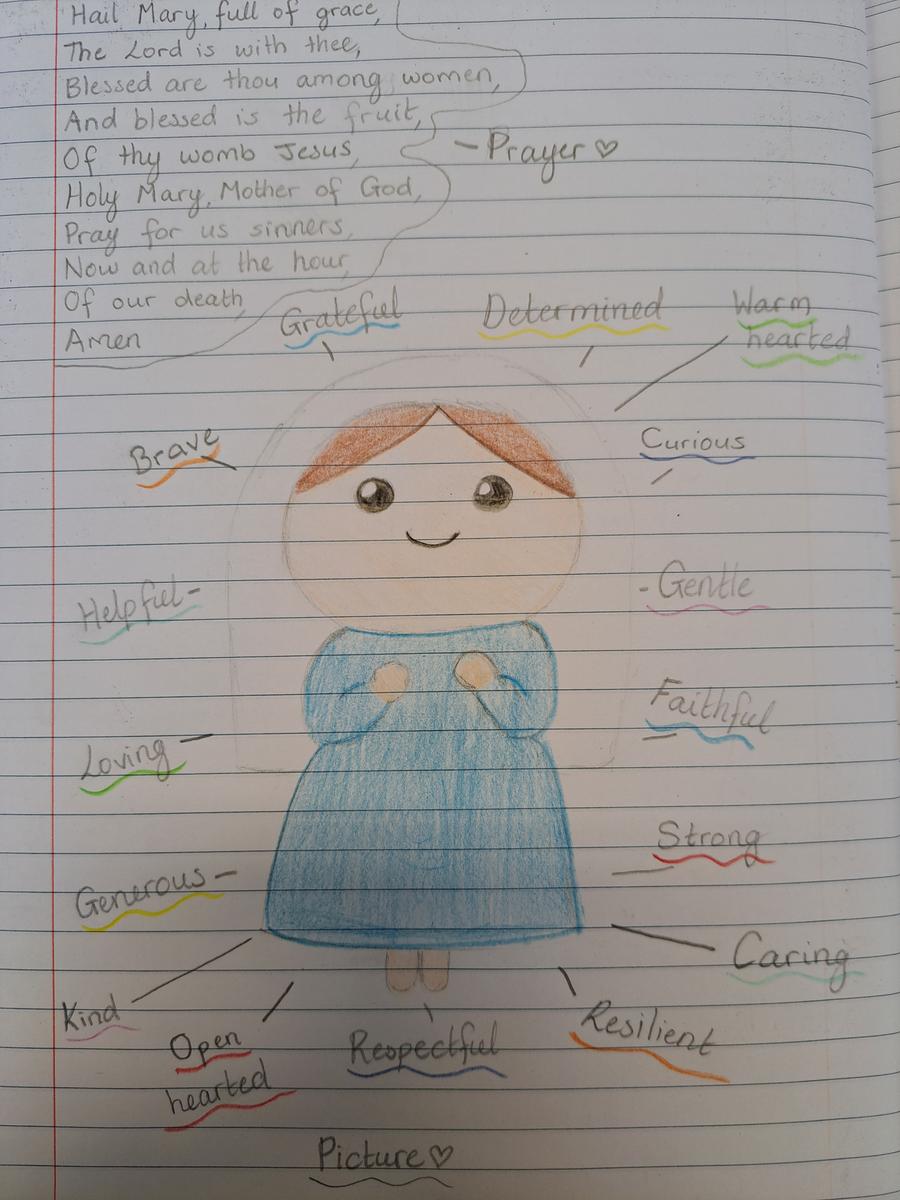 Hail Mary, full of grace,
The Lord is with thee,
Blessed are thou among women,
And blessed is the fruit,
Of thy womb Jesus,
Holy Mary, Mother of God,
Pray for us sinners,
Now and at the hour,
Of our death,
Amen
- Prayer ♡
Grateful
Determined
Warm
hearted
Brave
Curious
Helpful
Gentle
Faithful
Loving
Strong
Generous
Caring
Kind
Open
hearted
Respectful
Resilient
Picture ♡